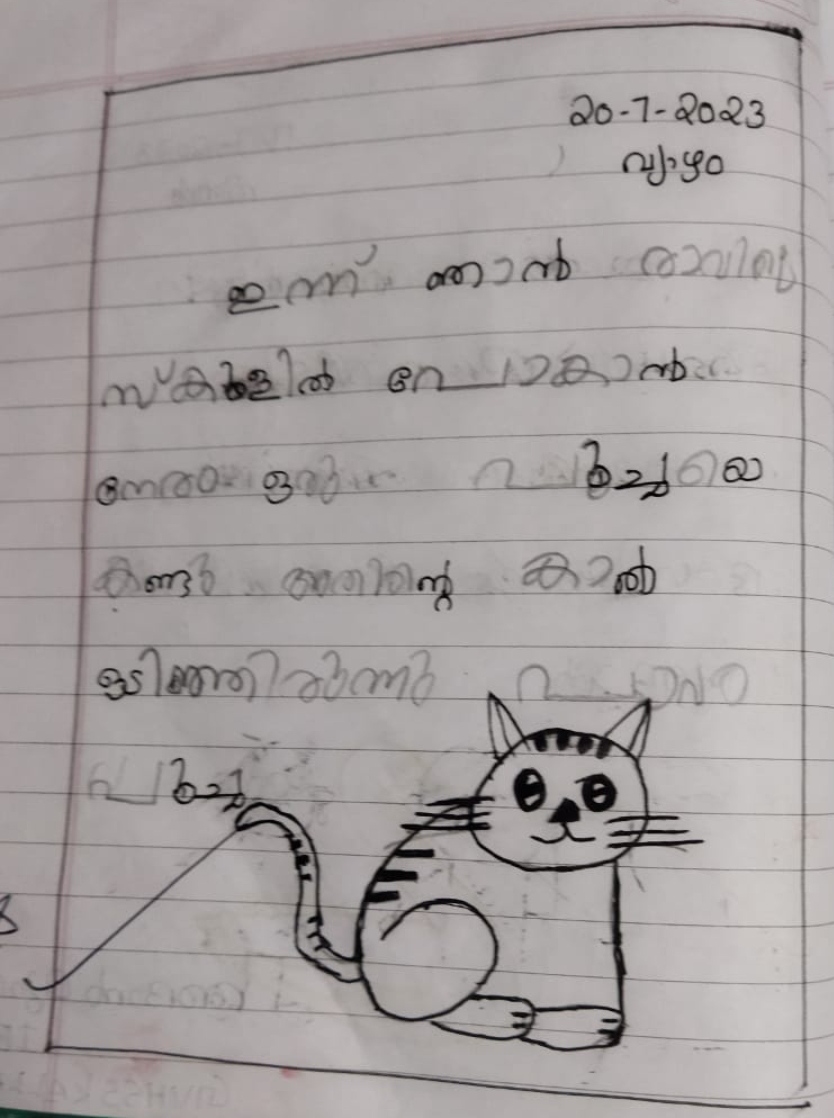 20-7-2023
വ്യാഴം
ഇന്ന് ഞാൻ രാവിലെ
സ്കൂളിൽ പോകാൻ
നേരം ഒരു പൂച്ചയെ
കണ്ടു അതിന്റെ കാൽ
ഒടിഞ്ഞിരുന്നു പാവം
പൂച്ച